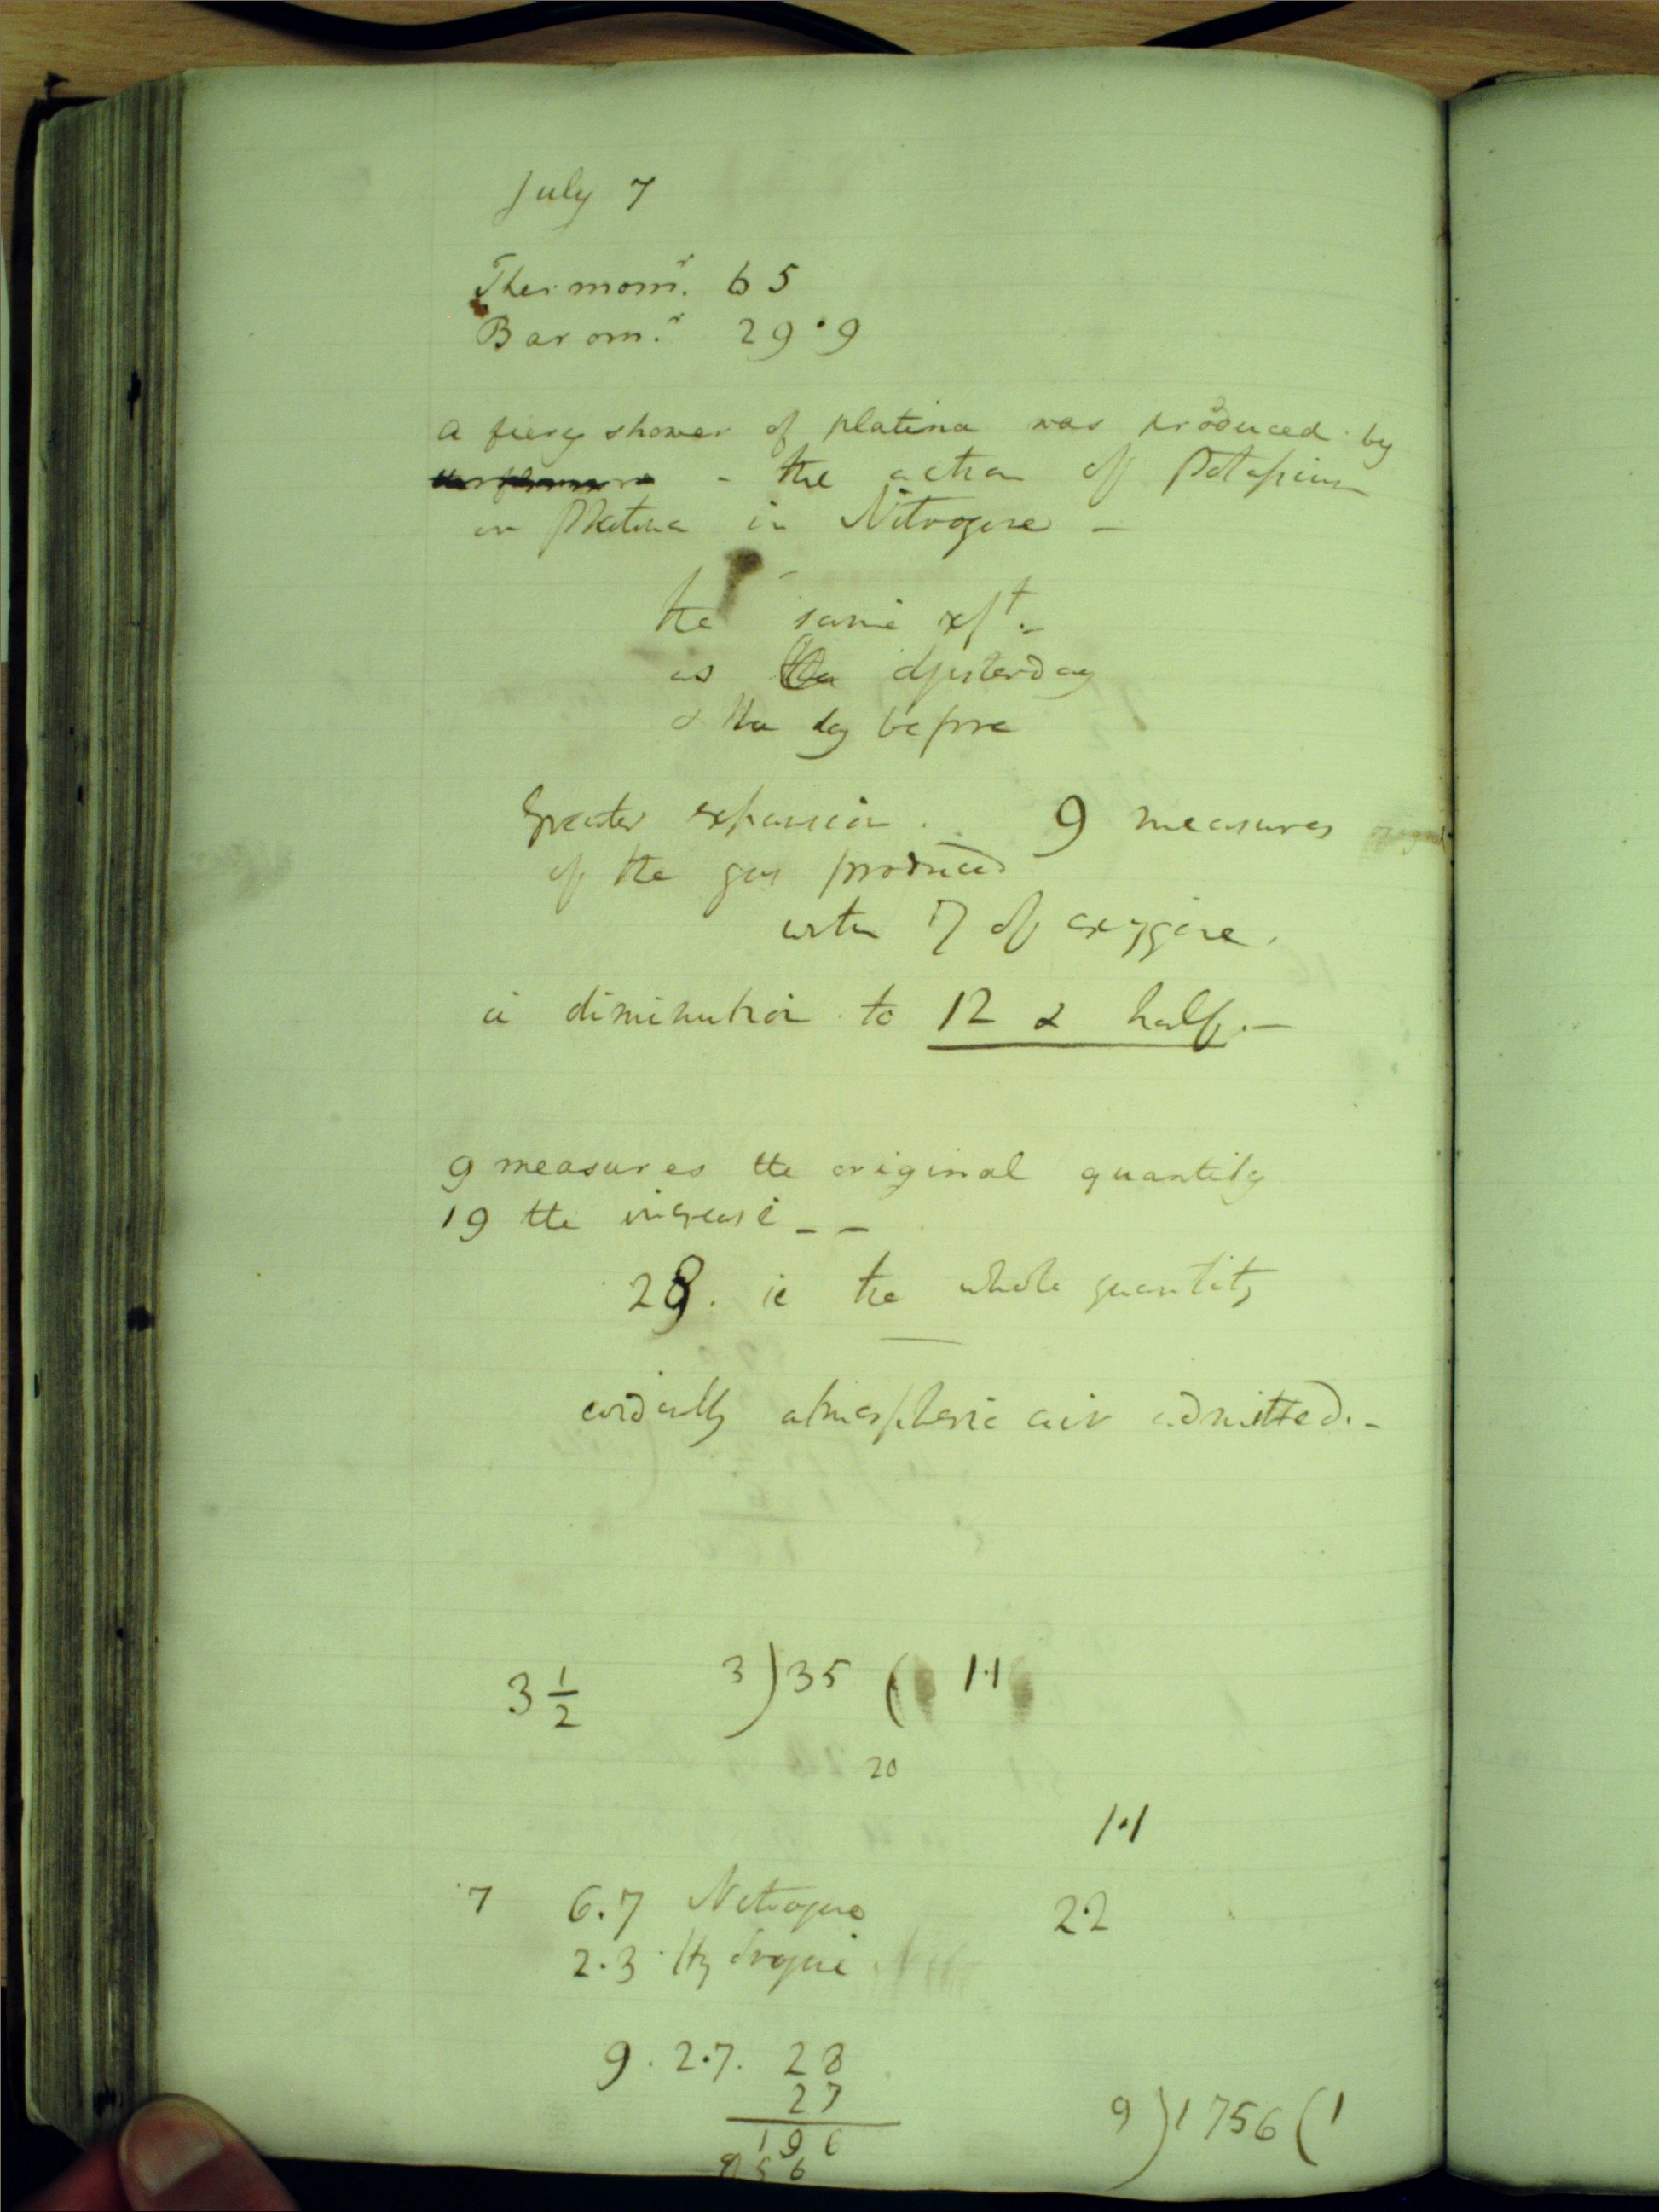 July 7
Thermomr. 65
Barom.r 29.9
a fiery shower of platina was produced by
- the action of Potassium
on Platina in Nitrogene -
the same expt.-
as yesterday
& the day before
Greater expansion. 9 measures
of the gas produced
with 7 of oxygene.
a diminution to 12 & half.-
9 measures the original quantity
19 the increase - -
28. is the whole quantity
atmospheric air admitted.-
3 1/2 3)35( 1.1
20
1.1
7 6.7 Nitrogene 2.2
2.3 Hydrogene
9. 2.7. 28
27
9)1756(1
196
56